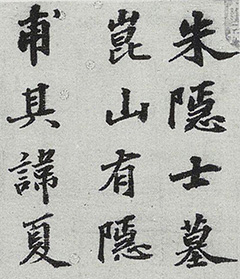 朱隱士墓
崑山有隱
甫其諱夏